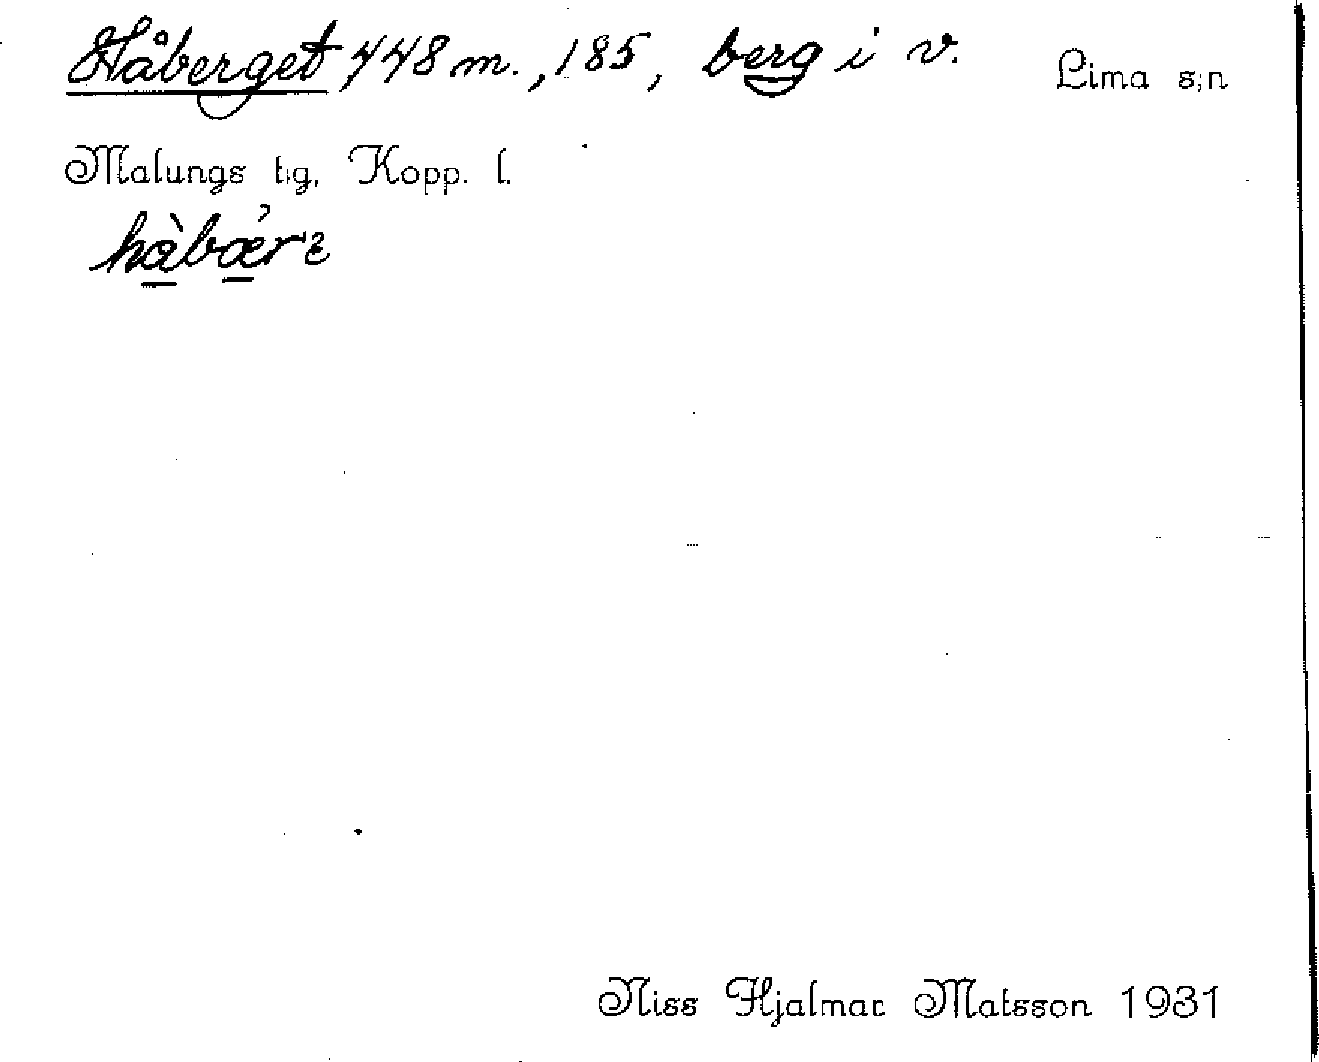 Håberget 448 m., 185, berg i v. Lima s:n
Malungs t:g, Kopp. l.
hàbær
Niss Hjalmar Matsson 1931